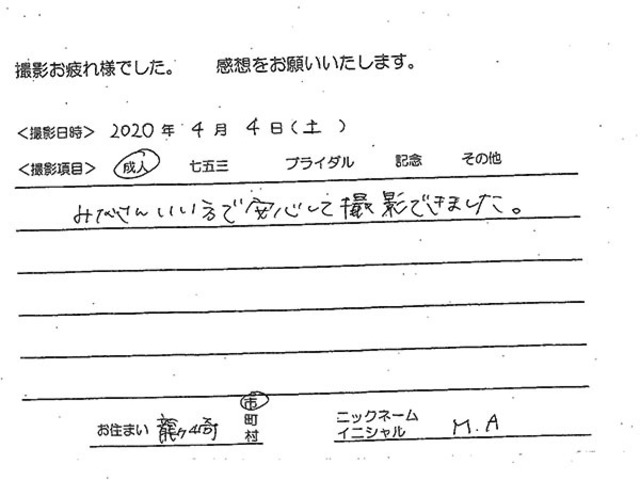 撮影お疲れ様でした。 感想をお願いいたします。
<撮影日時> 2020年 4月 4日(土)
<撮影項目> 成人 七五三 ブライダル 記念 その他
みなさんいい方で安心して撮影できました。
お住まい 龍ヶ崎 市
町
村
ニックネーム
イニシャル M.A